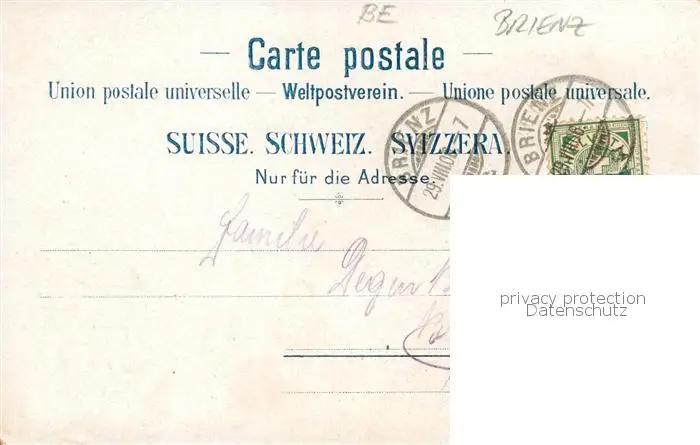 BE
BRIENZ
— Carte postale —
Union postale universelle — Weltpostverein. — Unione postale universale.
SUISSE. SCHWEIZ. SVIZZERA.
Nur für die Adresse.
BRIENZ
29.VIII.06. 7
BRIENZ
Familie
privacy protection
Datenschutz